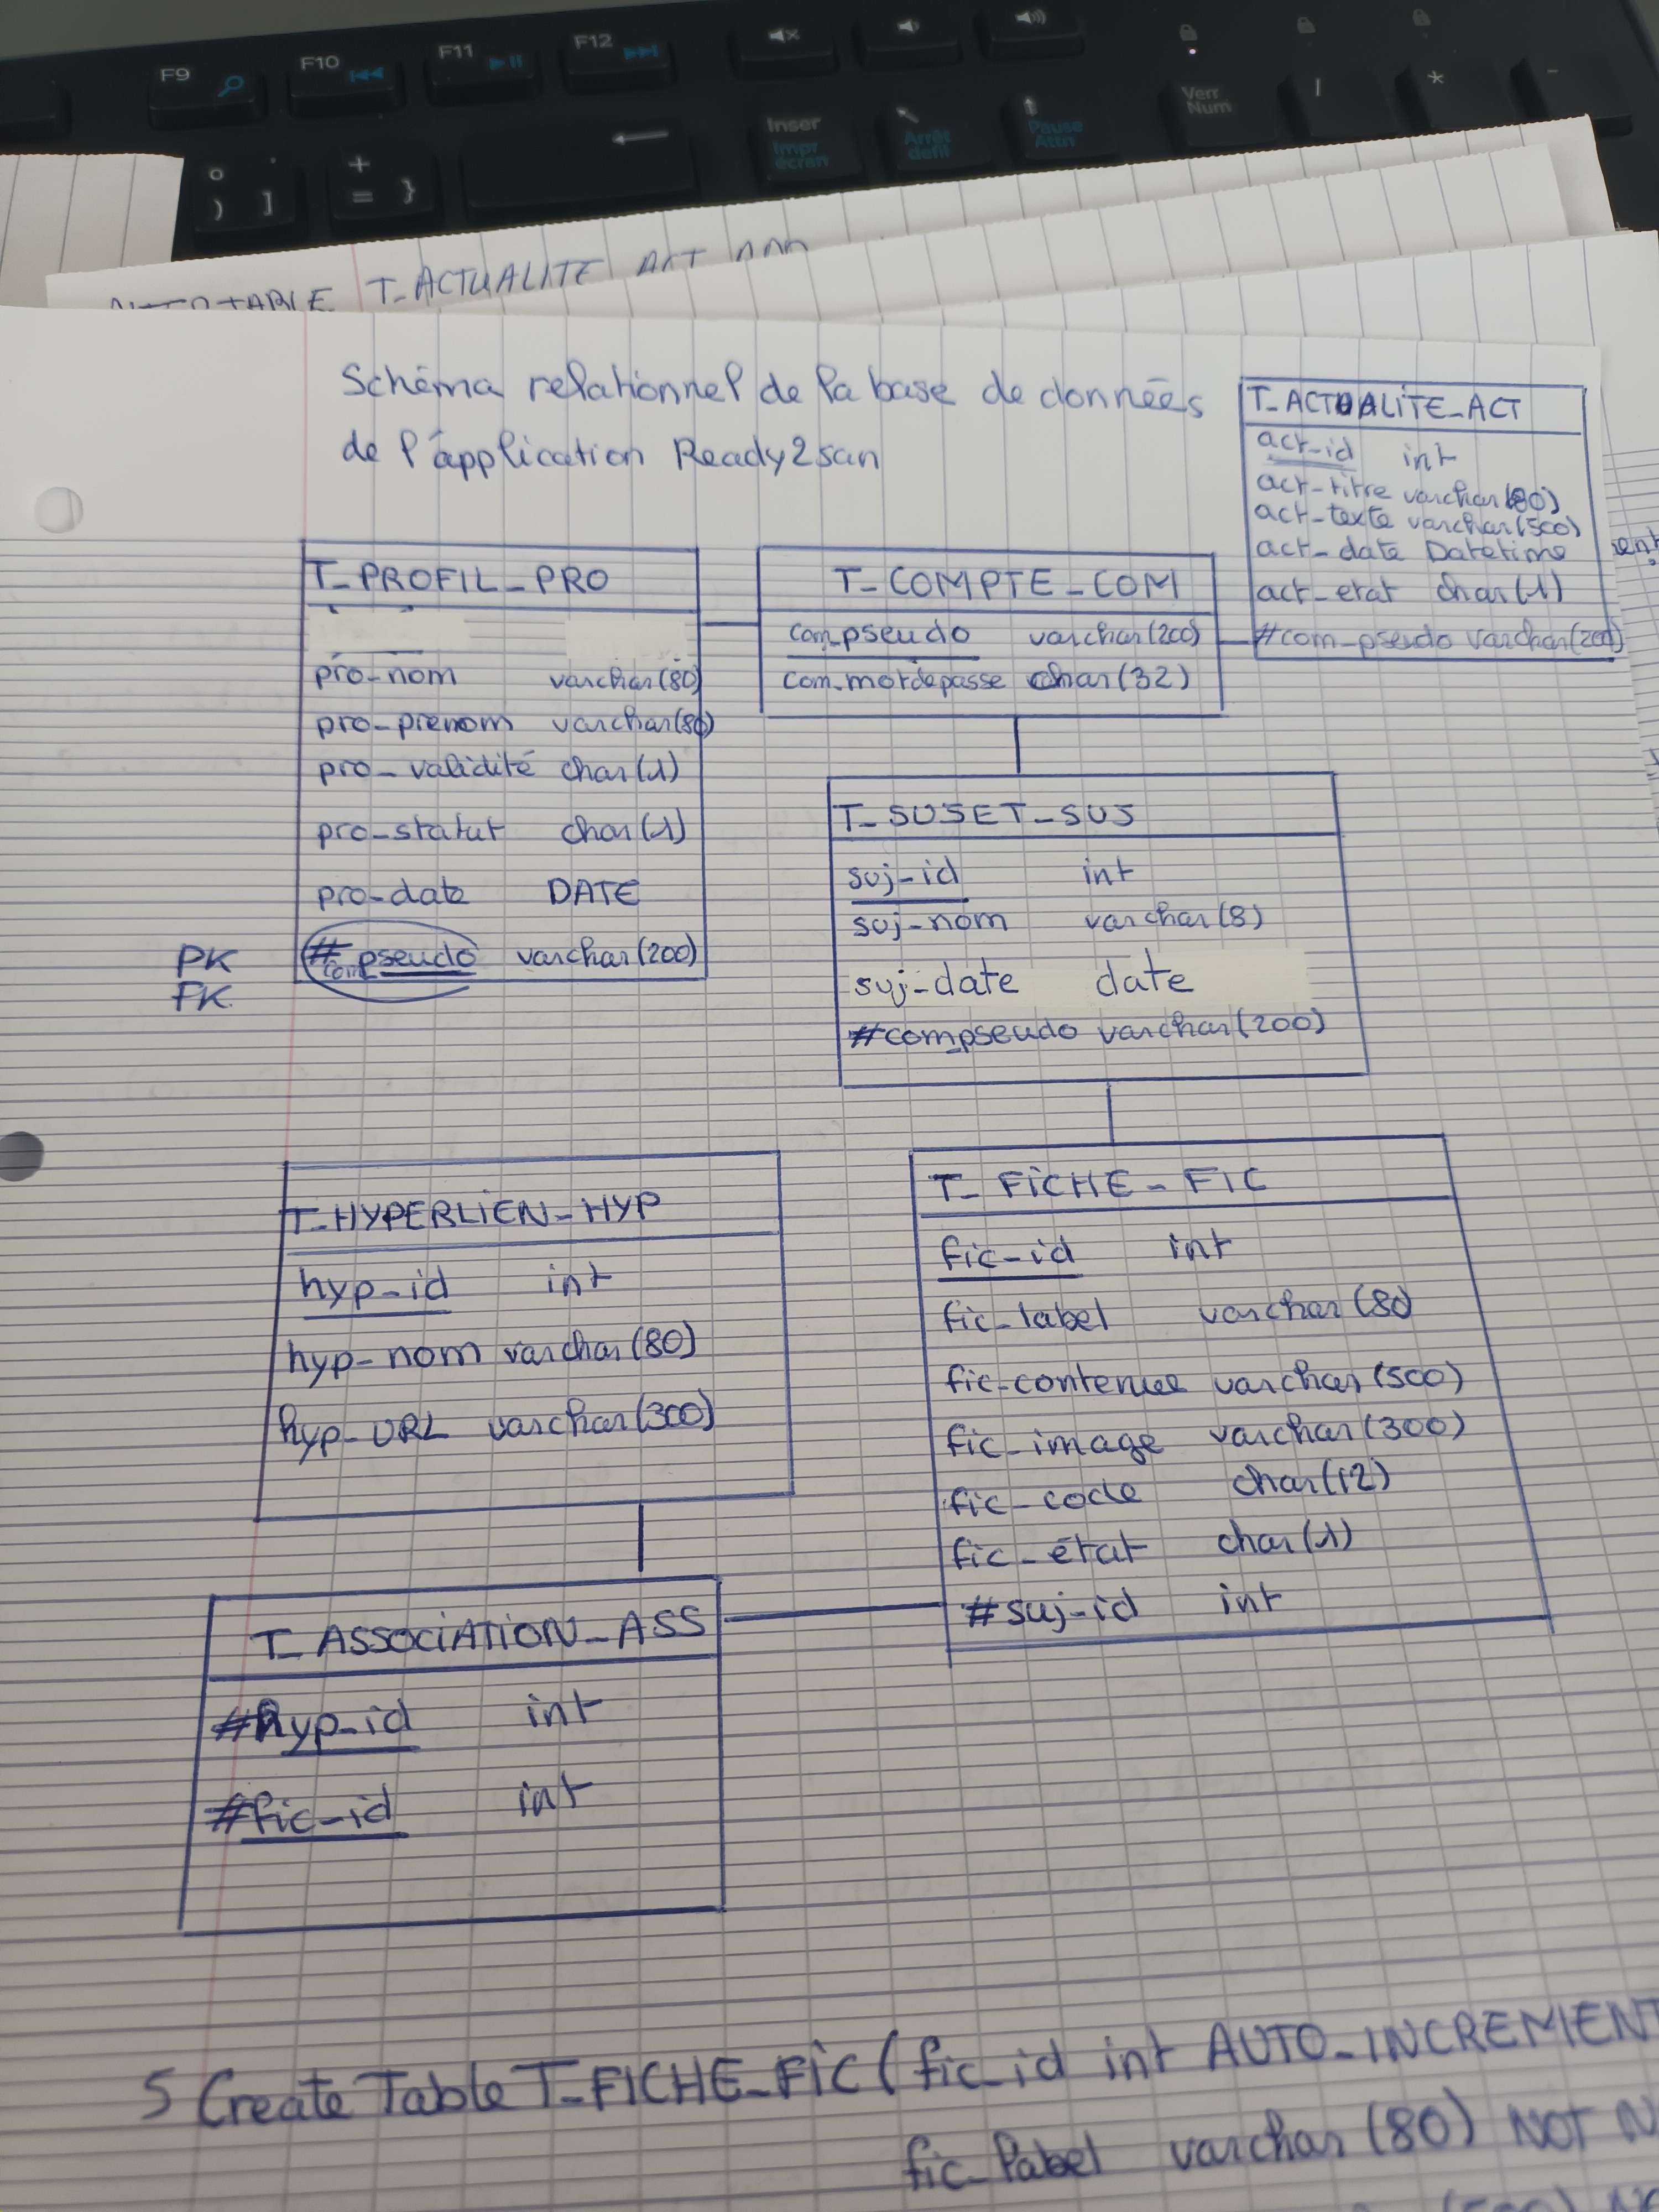 F9
F10
F11
F12
Inser
Impr
écran
Arrêt
défil
Pause
Attn
Verr
Num
/
*
-
°
)
]
+
=
}
TABLE T_ACTUALITE_ACT
Schéma relationnel de la base de données
de l'application Ready2scan
T_ACTUALITE_ACT
act-id int
act-titre varchar(80)
act-texte varchar(500)
act-date Datetime
act-etat char(1)
#com_pseudo varchar(200)
T_PROFIL_PRO
pro-nom varchar(80)
pro-prenom varchar(80)
pro-validité char(1)
pro-statut char(1)
pro-date DATE
PK
FK
#com_pseudo varchar(200)
T_COMPTE_COM
com_pseudo varchar(200)
com_motdepasse char(32)
T_SUJET_SUJ
suj-id int
suj-nom varchar(8)
suj-date date
#com_pseudo varchar(200)
T_HYPERLIEN_HYP
hyp-id int
hyp-nom varchar(80)
hyp-URL varchar(300)
T_FICHE_FIC
fic-id int
fic-label varchar(80)
fic-contenue varchar(500)
fic-image varchar(300)
fic-code char(12)
fic-état char(1)
#suj-id int
T_ASSOCIATION_ASS
#hyp-id int
#fic-id int
5 Create Table T_FICHE_FIC (fic_id int AUTO_INCREMENT
fic_label varchar (80) NOT N